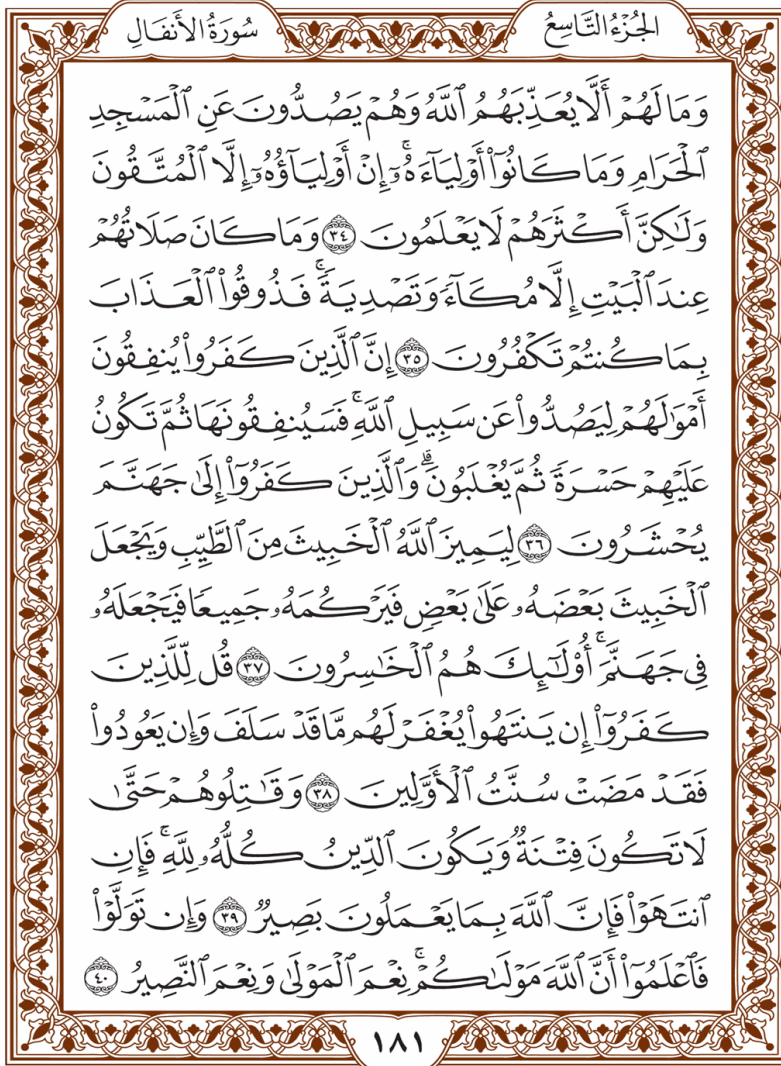 الجُزْءُ التَّاسِعُ
سُورَةُ الأَنفَالِ
وَمَا لَهُمْ أَلَّا يُعَذِّبَهُمُ ٱللَّهُ وَهُمْ يَصُدُّونَ عَنِ ٱلْمَسْجِدِ
ٱلْحَرَامِ وَمَا كَانُوٓا۟ أَوْلِيَآءَهُۥٓۚ إِنْ أَوْلِيَآؤُهُۥٓ إِلَّا ٱلْمُتَّقُونَ
وَلَٰكِنَّ أَكْثَرَهُمْ لَا يَعْلَمُونَ ٣٤ وَمَا كَانَ صَلَاتُهُمْ
عِندَ ٱلْبَيْتِ إِلَّا مُكَآءً وَتَصْدِيَةًۚ فَذُوقُوا۟ ٱلْعَذَابَ
بِمَا كُنتُمْ تَكْفُرُونَ ٣٥ إِنَّ ٱلَّذِينَ كَفَرُوا۟ يُنفِقُونَ
أَمْوَٰلَهُمْ لِيَصُدُّوا۟ عَن سَبِيلِ ٱللَّهِۚ فَسَيُنفِقُونَهَا ثُمَّ تَكُونُ
عَلَيْهِمْ حَسْرَةً ثُمَّ يُغْلَبُونَۗ وَٱلَّذِينَ كَفَرُوٓا۟ إِلَىٰ جَهَنَّمَ
يُحْشَرُونَ ٣٦ لِيَمِيزَ ٱللَّهُ ٱلْخَبِيثَ مِنَ ٱلطَّيِّبِ وَيَجْعَلَ
ٱلْخَبِيثَ بَعْضَهُۥ عَلَىٰ بَعْضٍ فَيَرْكُمَهُۥ جَمِيعًا فَيَجْعَلَهُۥ
فِى جَهَنَّمَۚ أُو۟لَٰٓئِكَ هُمُ ٱلْخَٰسِرُونَ ٣٧ قُل لِّلَّذِينَ
كَفَرُوٓا۟ إِن يَنتَهُوا۟ يُغْفَرْ لَهُم مَّا قَدْ سَلَفَ وَإِن يَعُودُوا۟
فَقَدْ مَضَتْ سُنَّتُ ٱلْأَوَّلِينَ ٣٨ وَقَٰتِلُوهُمْ حَتَّىٰ
لَا تَكُونَ فِتْنَةٌ وَيَكُونَ ٱلدِّينُ كُلُّهُۥ لِلَّهِۚ فَإِنِ
ٱنتَهَوْا۟ فَإِنَّ ٱللَّهَ بِمَا يَعْمَلُونَ بَصِيرٌ ٣٩ وَإِن تَوَلَّوْا۟
فَٱعْلَمُوٓا۟ أَنَّ ٱللَّهَ مَوْلَىٰكُمْۚ نِعْمَ ٱلْمَوْلَىٰ وَنِعْمَ ٱلنَّصِيرُ ٤٠
١٨١